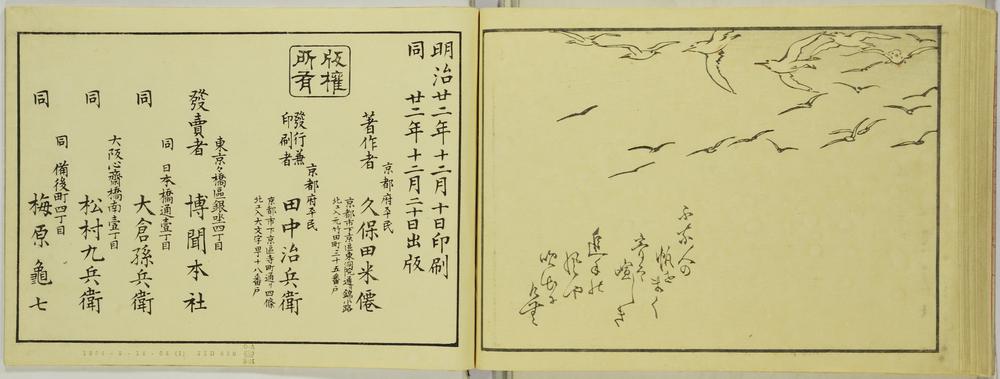 明治廿二年十二月十日印刷
同 廿二年十二月二十日出版
版權
所有
京都府平民
著作者 久保田米僊
京都市下京區東洞院通錦小路
北エ入元竹田町三十五番戸
京都府平民
發行兼
印刷者 田中治兵衛
京都市下京區寺町通リ四條
北エ入大文字町十八番戸
東京々橋區銀座四丁目
發賣者 博聞本社
同 日本橋通壹丁目
同 大倉孫兵衛
大阪心齋橋南壹丁目
同 松村九兵衛
同 備後町四丁目
同 梅原龜七